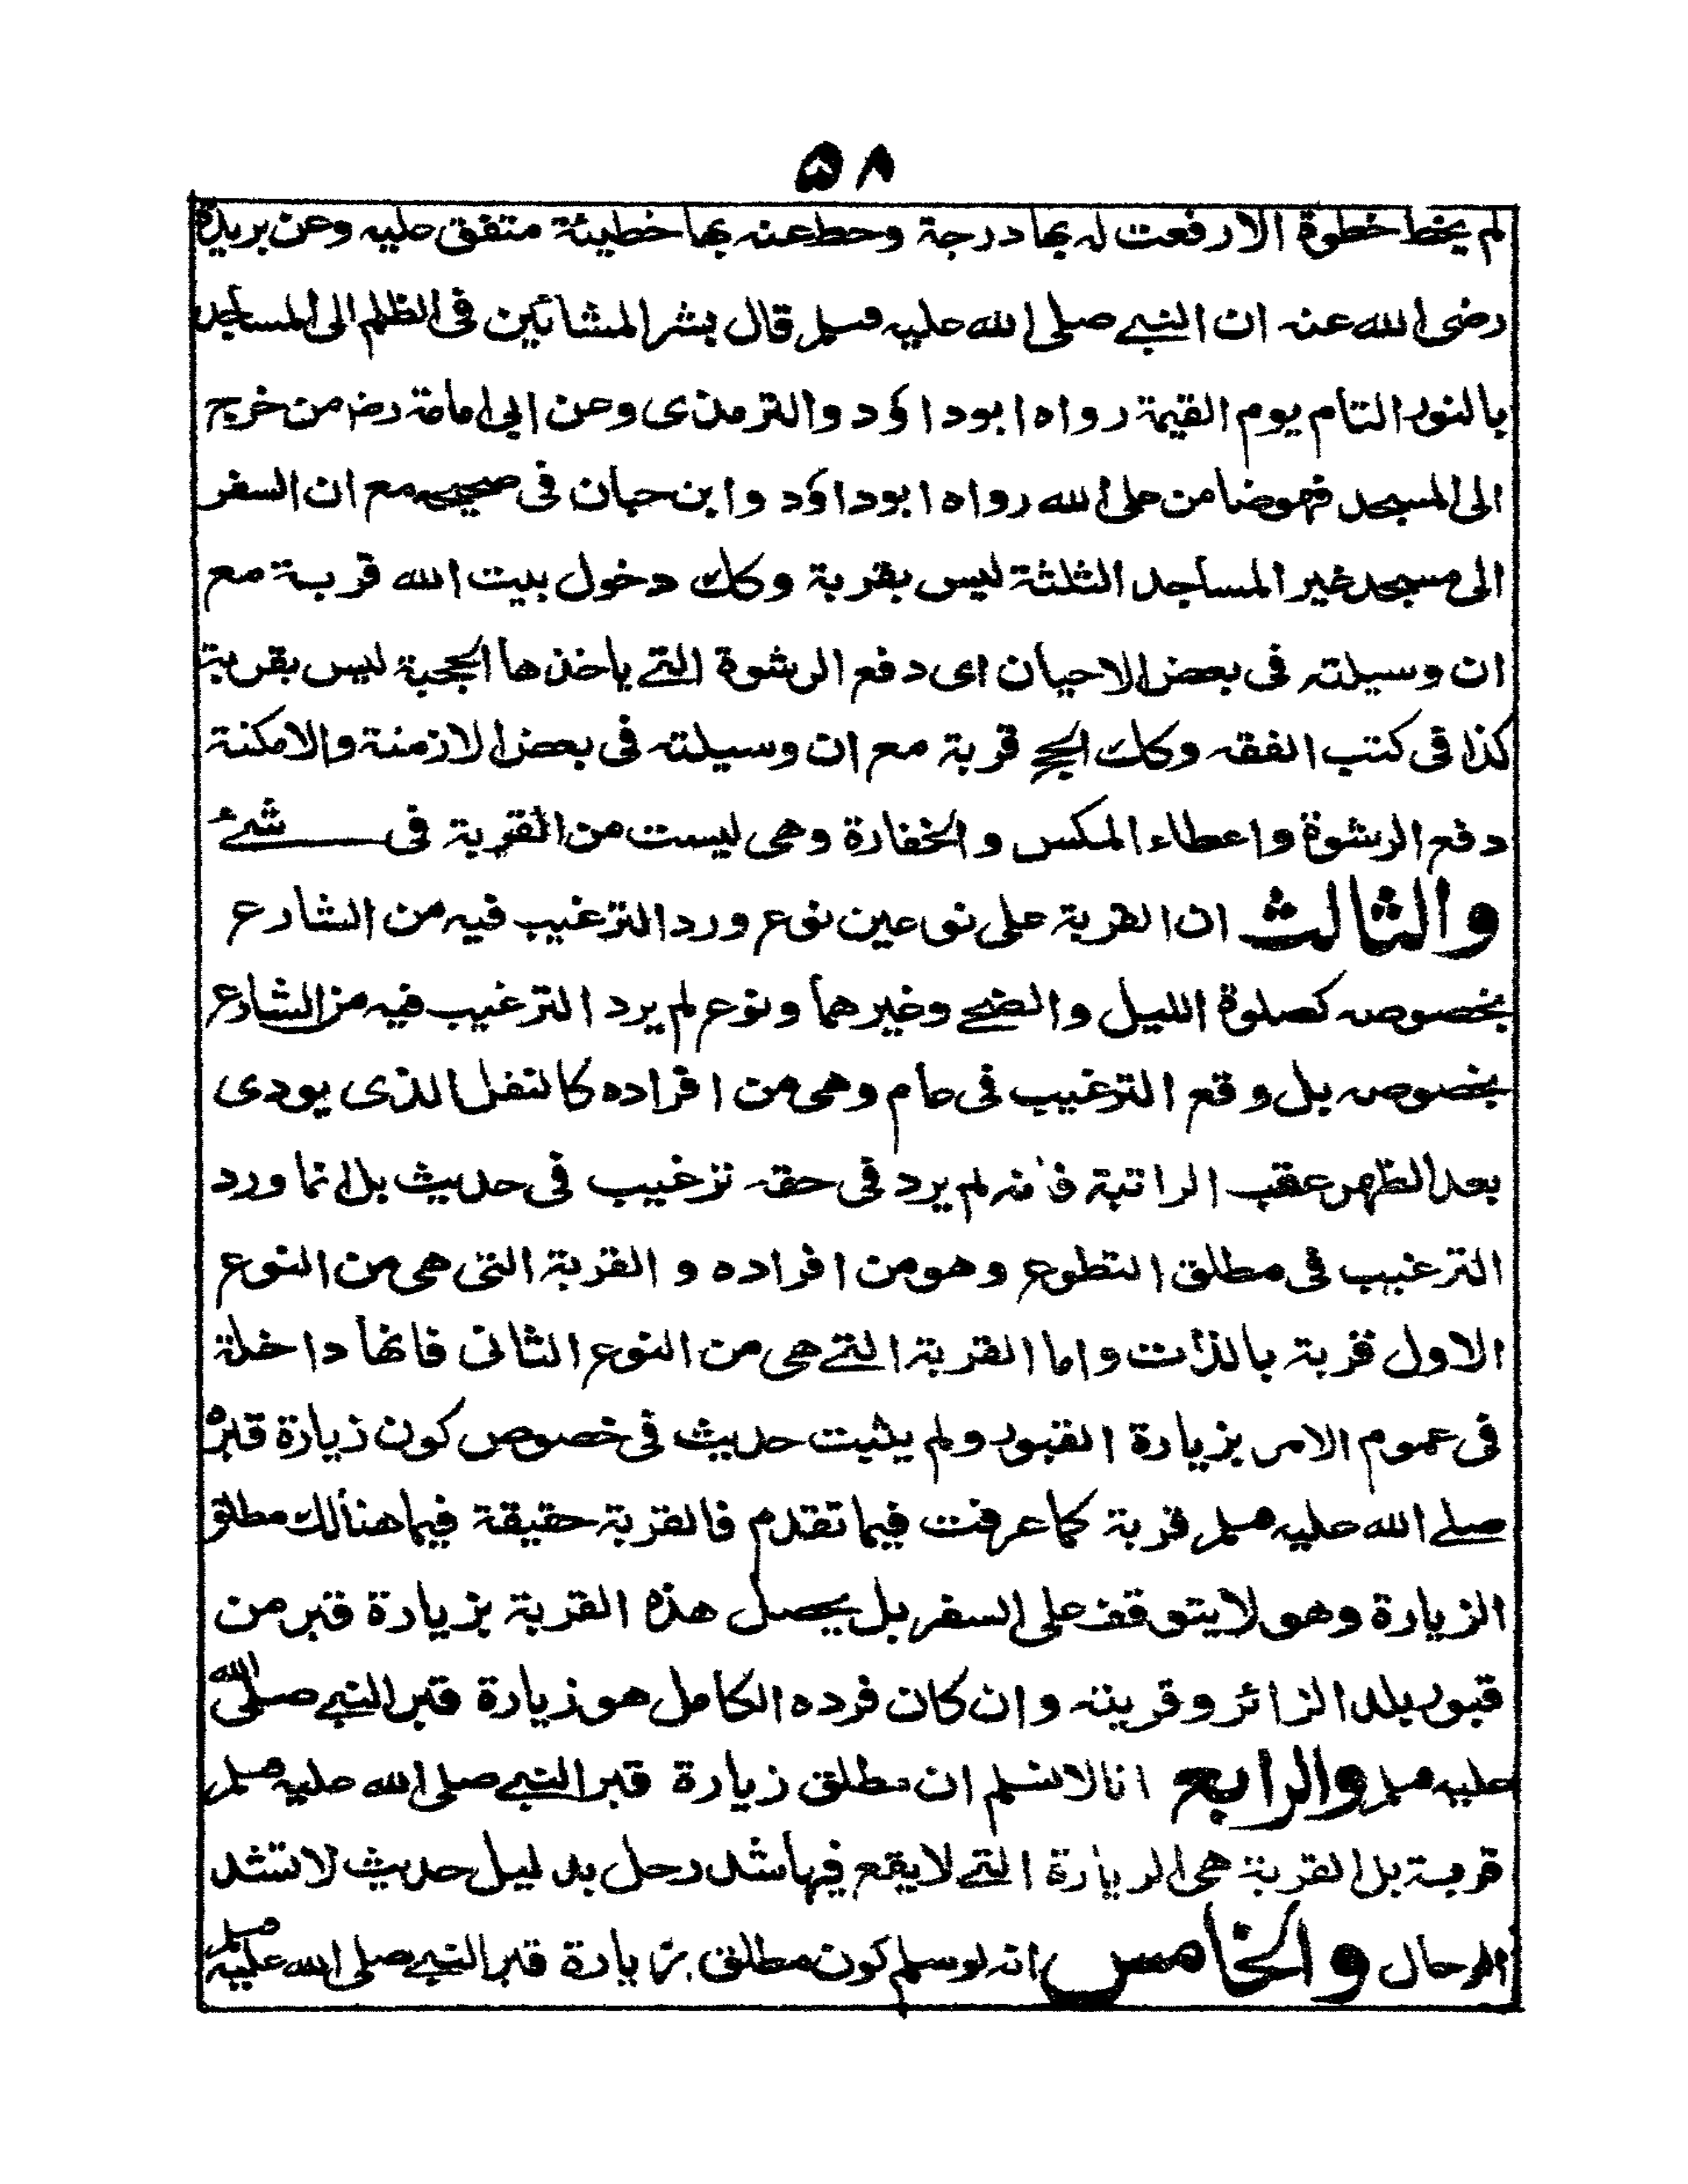 ۵۸
لم يخط خطوة الا رفعت له بها درجة وحط عنه بها خطيئة متفق عليه وعن بريدة
رضى الله عنه ان النبى صلى الله عليه وسلم قال بشر المشائين فى الظلم الى المساجد
بالنور التام يوم القيمة رواه ابو داؤد والترمذى وعن ابى امامة رض من خرج
الى المسجد فهو ضامن على الله رواه ابو داؤد وابن حبان فى صحيحه مع ان السفر
الى مسجد غير المساجد الثلثة ليس بقربة وكك دخول بيت الله قربة مع
ان وسيلته فى بعض الاحيان اى دفع الرشوة التى ياخذها الحجبة ليس بقربة
كذا فى كتب الفقه وكك الحج قربة مع ان وسيلته فى بعض الازمنة والامكنة
دفع الرشوة واعطاء المكس والخفارة وهى ليست من القربة فى شئ
والثالث ان القربة على نوعين نوع ورد الترغيب فيه من الشارع
بخصوصه كصلوة الليل والضحى وغيرهما ونوع لم يرد الترغيب فيه من الشارع
بخصوصه بل وقع الترغيب فى عام وهى من افراده كالنفل الذى يودى
بعد الظهر عقب الراتبة فانه لم يرد فى حقه ترغيب فى حديث بل انما ورد
الترغيب فى مطلق التطوع وهو من افراده و القربة التى هى من النوع
الاول قربة بالذات واما القربة التى هى من النوع الثانى فانها داخلة
فى عموم الامر بزيارة القبور ولم يثبت حديث فى خصوص كون زيارة قبره
صلى الله عليه وسلم قربة كما عرفت فيما تقدم فالقربة حقيقة فيما هنالك مطلق
الزيارة وهو لا يتوقف على السفر بل يحصل هذه القربة بزيارة قبر من
قبور بلد الزائر وقريته وان كان فرده الكامل هو زيارة قبر النبى صلى الله
عليه وسلم والرابع انا لا نسلم ان مطلق زيارة قبر النبى صلى الله عليه وسلم
قربة بل القربة هى الزيارة التى لا يقع فيها شد رحل بدليل حديث لا تشد
الرحال والخامس انه لو سلم كون مطلق زيارة قبر النبى صلى الله عليه وسلم